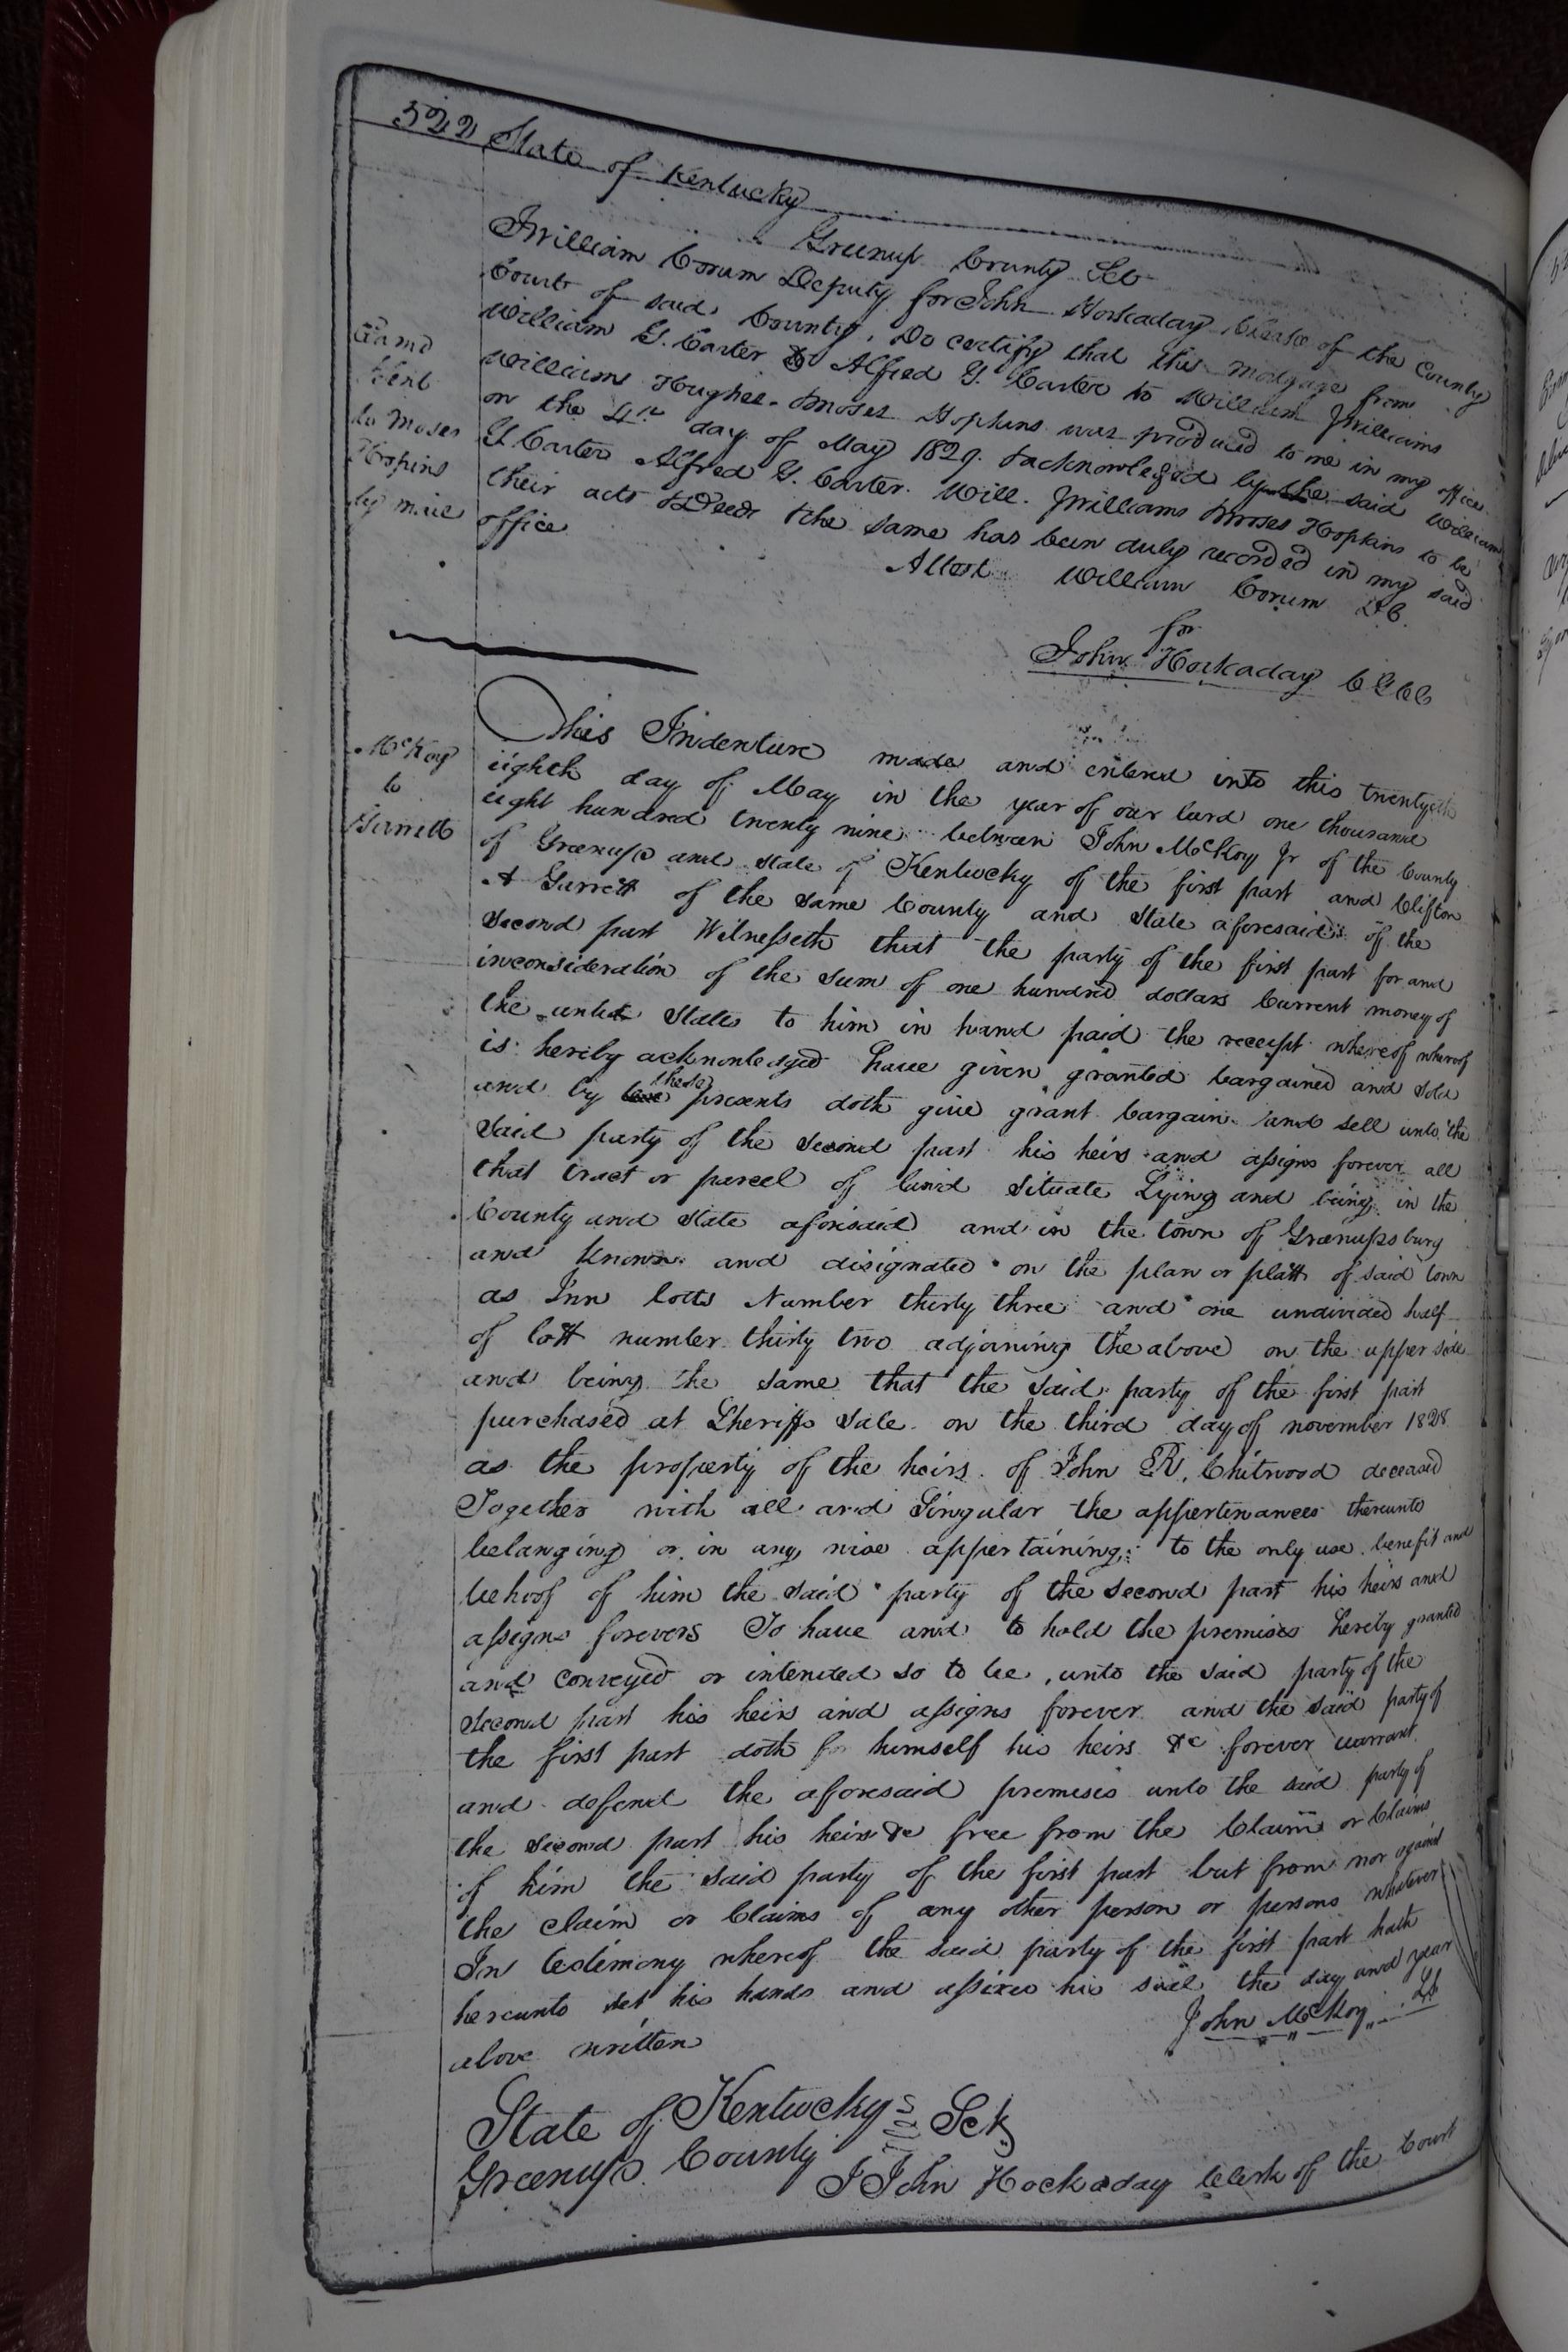 522 State of Kentucky
Greenup County Sct
I William Corum Deputy for John Hockaday Clerk of the County
Court of said County, Do certify that this mortgage from
William G. Carter & Alfred G. Carter to William J Williams
Williams Hughes & Moses Hopkins was produced to me in my office
on the 4th day of May 1829. & acknowledged by the said William
G Carter Alfred G. Carter. Will. J Williams & Moses Hopkins to be
their acts & Deeds & the same has been duly recorded in my said
office
Attest William Corum D.C.
for
John Hockaday C G C C
Exam'd
& sent
to Moses
Hopins
by mail
McKoy
to
Garrett
This Indenture made and entered into this twentyeth
eighth day of May in the year of our lord one thousand
eight hundred twenty nine between John McKoy Jr of the County
of Greenup and state of Kentucky of the first part and Clifton
A Garrett of the same County and State aforesaid of the
second part Witnesseth that the party of the first part for and
inconsideration of the sum of one hundred dollars Current money of
the united States to him in hand paid the receipt whereof whereof
is hereby acknowledged have given granted bargained and sold
and by these presents doth give grant bargain and sell unto the
said party of the second part his heirs and assigns forever all
that tract or parcel of land situate Lying and being in the
County and state aforesaid and in the town of Greenupsburg
and known and disignated on the plan or platt of said town
as Inn lotts Number thirty three and one undivided half
of lott number thirty two adjoining the above on the upper side
and being the same that the said party of the first part
purchased at Sheriffs sale on the third day of november 1828
as the property of the heirs of John R. Chitwood deceased
Together with all and Singular the appertinances thereunto
belanging or in any wise appertaining to the only use benefit and
behoof of him the said party of the second part his heirs and
assigns forevers To have and to hold the premises hereby granted
and conveyed or intended so to be, unto the said party of the
second part his heirs and assigns forever and the said party of
the first part doth for himself his heirs &c forever warrant
and defend the aforesaid premises unto the said party of
the second part his heirs &c free from the Claim or Claims
of him the said party of the first part but from nor against
the claim or Claims of any other person or persons whatever
In testimony whereof the said party of the first part hath
hereunto set his hands and affixed his seal the day and year
above written John McKoy LS
State of Kentucky Sct
Greenup County
I John Hockaday Clerk of the Court